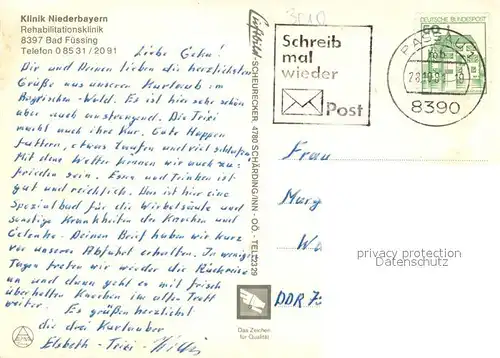 Klinik Niederbayern
Rehabilitationsklinik
8397 Bad Füssing
Telefon 0 85 31 / 20 91
Liebe Gehn!
Dir und Deinen lieben die herzlichsten
Grüße aus unserem Kurlaub im
Bayrischen-Wald. Es ist hier sehr schön
aber auch anstrengend. Die Trixi
macht auch ihre Kur. Gute Happen
futtern, etwas laufen und viel schlafen.
Mit dem Wetter können wir auch zu-
frieden sein. Essen und Trinken ist
gut und reichlich. Das ist hier eine
Spezialbad für die Wirbelsäule und
sonstige Krankheiten der Knochen und
Gelenke. Deinen Brief haben wir kurz
vor unserer Abfahrt erhalten. In wenigen
Tagen treten wir wieder die Rückreise
an und dann geht es mit frisch
überholten Knochen im alten Trott
weiter. Es grüßen herzlichst
die drei Kurlauber
Elsbeth - Trixi -
Luftbild SCHEURECKER, 4780 SCHÄRDING/INN - OÖ. - TEL.
Schreib
mal
wieder
Post
DEUTSCHE BUNDESPOST
PASSAU
8390
Frau
Marg
Wa
DDR 7
privacy protection
Datenschutz
Das Zeichen
für Qualität